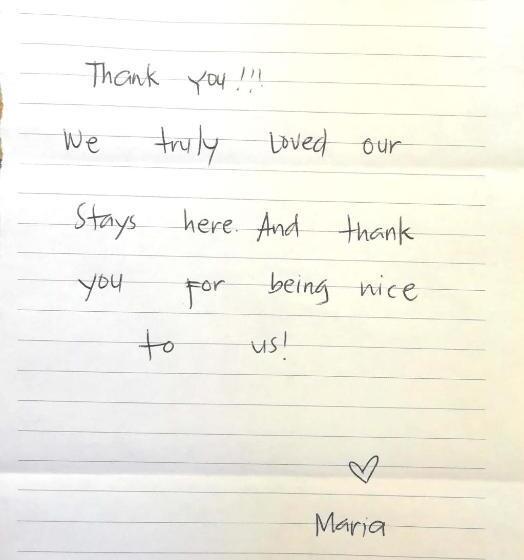 Thank you!!!
We truly Loved our
Stays here. And thank
you for being nice
to us!
♡
Maria